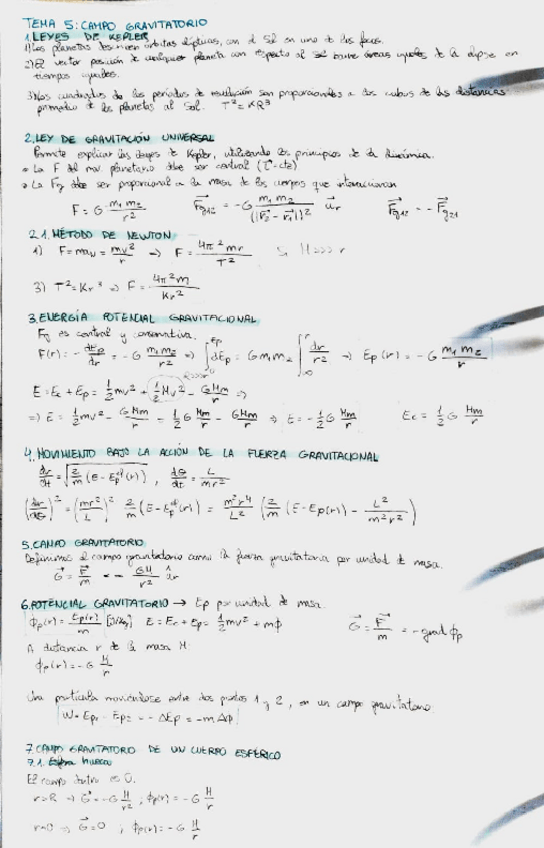 TEMA 5: CAMPO GRAVITATORIO
1. LEYES DE KEPLER
1) Los planetas describen órbitas elípticas, con el Sol en uno de los focos.
2) El vector posición de cualquier planeta con respecto al sol barre áreas iguales de la elipse en
tiempos iguales.
3) Los cuadrados de los periodos de revolución son proporcionales a los cubos de las distancias
promedio de los planetas al Sol. T² = KR³
2. LEY DE GRAVITACIÓN UNIVERSAL
Permite explicar las leyes de Kepler, utilizando los principios de la dinámica.
• La F del mov. planetario debe ser central (L⃗ = cte)
• La Fg debe ser proporcional a la masa de los cuerpos que interaccionan
F = G m₁m₂/r² F⃗g12 = -G m₁m₂/(|r⃗₂ - r⃗₁|)² u⃗r F⃗g12 = -F⃗g21
2.1. MÉTODO DE NEWTON
1) F = maN = mv²/r ⇒ F = 4π²mr/T² Si M>>> r
3) T² = Kr³ ⇒ F = 4π²m/Kr²
3. ENERGÍA POTENCIAL GRAVITACIONAL
Fg es central y conservativa.
F(r) = -dEp/dr = -G m₁m₂/r² ⇒ ∫₀^Ep dEp = G m₁m₂ ∫∞^r dr/r² → Ep(r) = -G m₁m₂/r
E = Ec + Ep = ½mv² + ½Mv² - GMm/r ⇒
⇒ E = ½mv² - GMm/r = ½G Mm/r - GMm/r ⇒ E = -½G Mm/r Ec = ½G Mm/r
4. MOVIMIENTO BAJO LA ACCIÓN DE LA FUERZA GRAVITACIONAL
dr/dt = √(2/m (E - Ep^ef(r))), dθ/dt = L/mr²
(dr/dθ)² = (mr²/L)² 2/m (E - Ep^ef(r)) = m²r⁴/L² (2/m (E - Ep(r)) - L²/m²r²)
5. CAMPO GRAVITATORIO
Definimos el campo gravitatorio como la fuerza gravitatoria por unidad de masa.
G⃗ = F⃗/m = - GM/r² ûr
6. POTENCIAL GRAVITATORIO → Ep por unidad de masa.
ϕp(r) = Ep(r)/m [J/kg] E = Ec + Ep = ½mv² + mϕ G⃗ = F⃗/m = -grad ϕp
A distancia r de la masa M:
ϕp(r) = -G M/r
Una partícula moviéndose entre dos puntos 1 y 2, en un campo gravitatorio
W = Ep₁ - Ep₂ = -ΔEp = -mΔϕ
7. CAMPO GRAVITATORIO DE UN CUERPO ESFÉRICO
7.1. Esfera hueca
El campo dentro es 0.
r>R → G⃗ = -G M/r² ; ϕp(r) = -G M/r
r=0 ⇒ G⃗ = 0 ; ϕp(r) = -G M/r